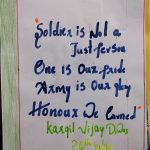 Soldier is Not a
Just person
One is Our pride
Army is Our glory
Honour We Earned
Kargil Vijay Diwas
26th July